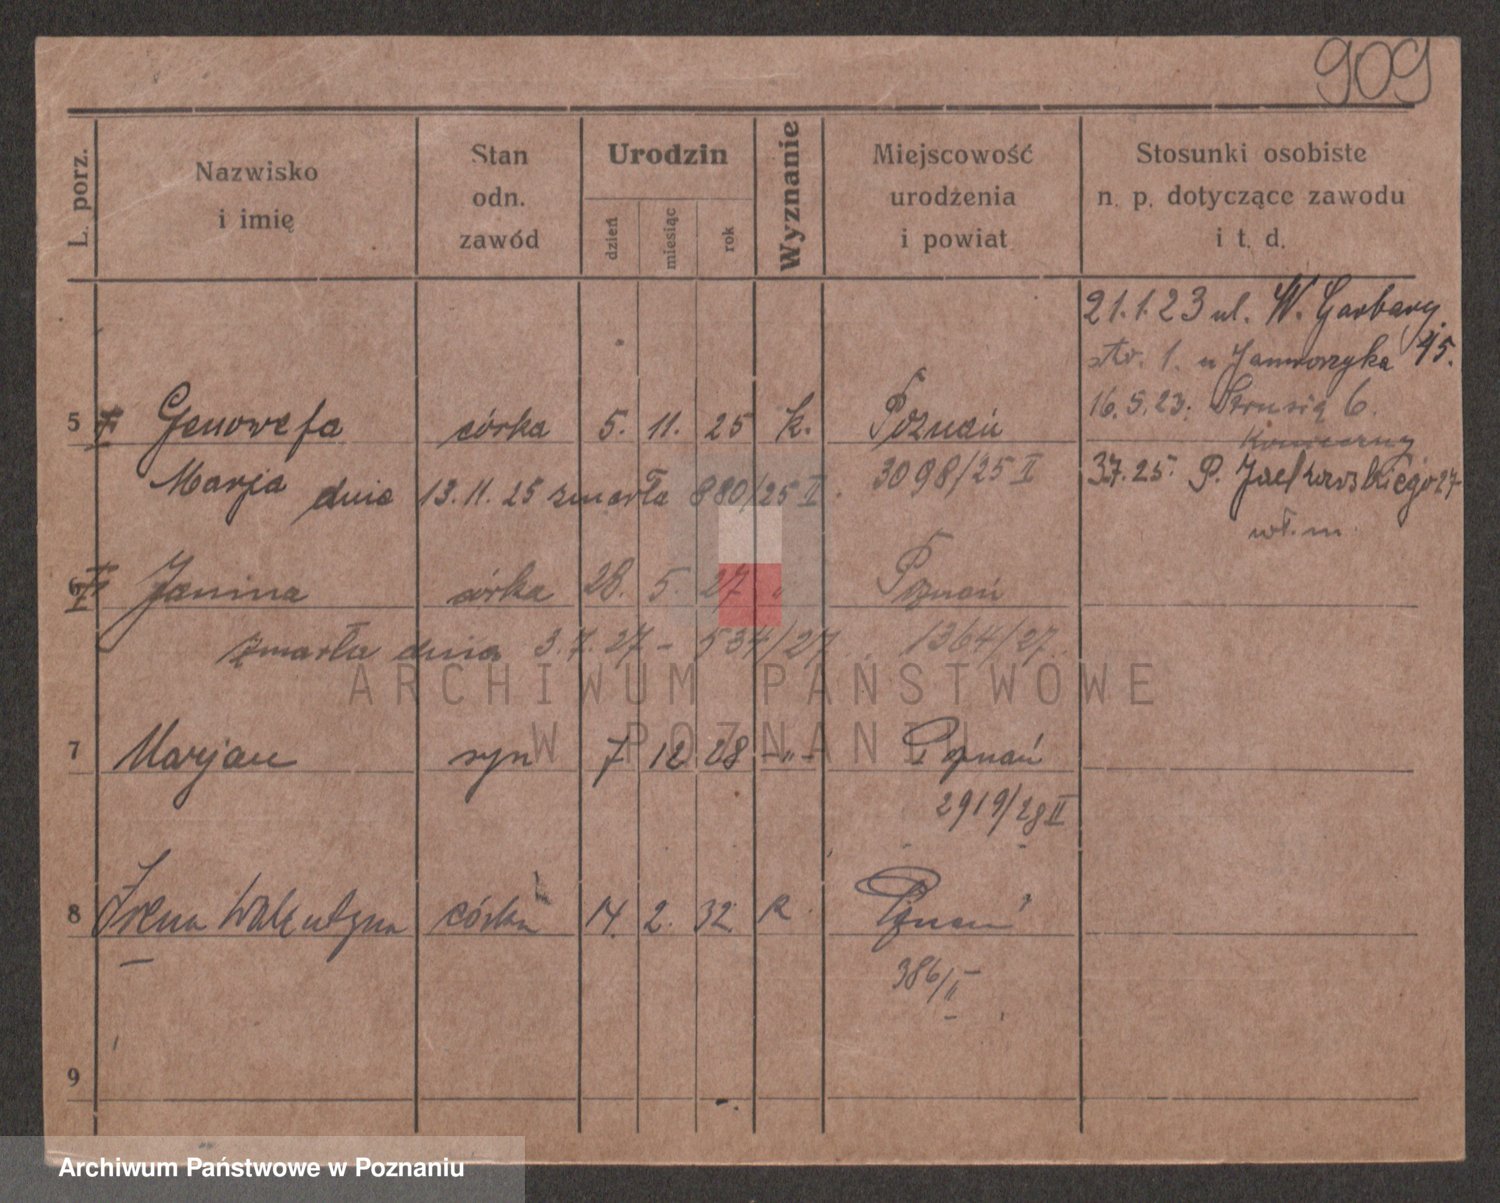 909
L. porz.
Nazwisko
i imię
Stan
odn.
zawód
Urodzin
dzień
miesiąc
rok
Wyznanie
Miejscowość
urodzenia
i powiat
Stosunki osobiste
n. p. dotyczące zawodu
i t. d.
21.1.23 ul. W. Garbary 45.
str. 1. u Jaworzyka
16.5.23. Strusia 6.
5 Genowefa córka 5. 11. 25 k. Poznań
Marja dnia 13.11.25 zmarła 880/25 II. 3098/25 II
3.7.25. P. Jackowskiego 27
wł. m.
6 Janina córka 28. 5. 27 " Poznań
zmarła dnia 3.7.27 - 534/27. 1364/27.
7 Marjan syn 7 12 28 -"- Poznań
2919/28 II
8 Irena Walentyna córka 14. 2. 32 k Poznań
386/II
9
ARCHIWUM PAŃSTWOWE
W POZNANIU
Archiwum Państwowe w Poznaniu